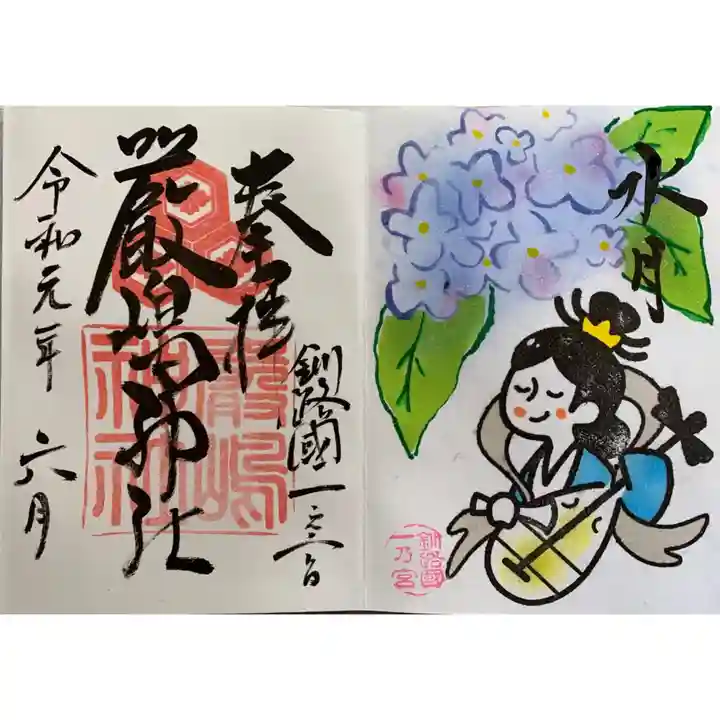 水月
釧路國
一乃宮
奉拝
釧路國一之宮
厳嶋神社
嚴嶋
神社
令和元年 六月